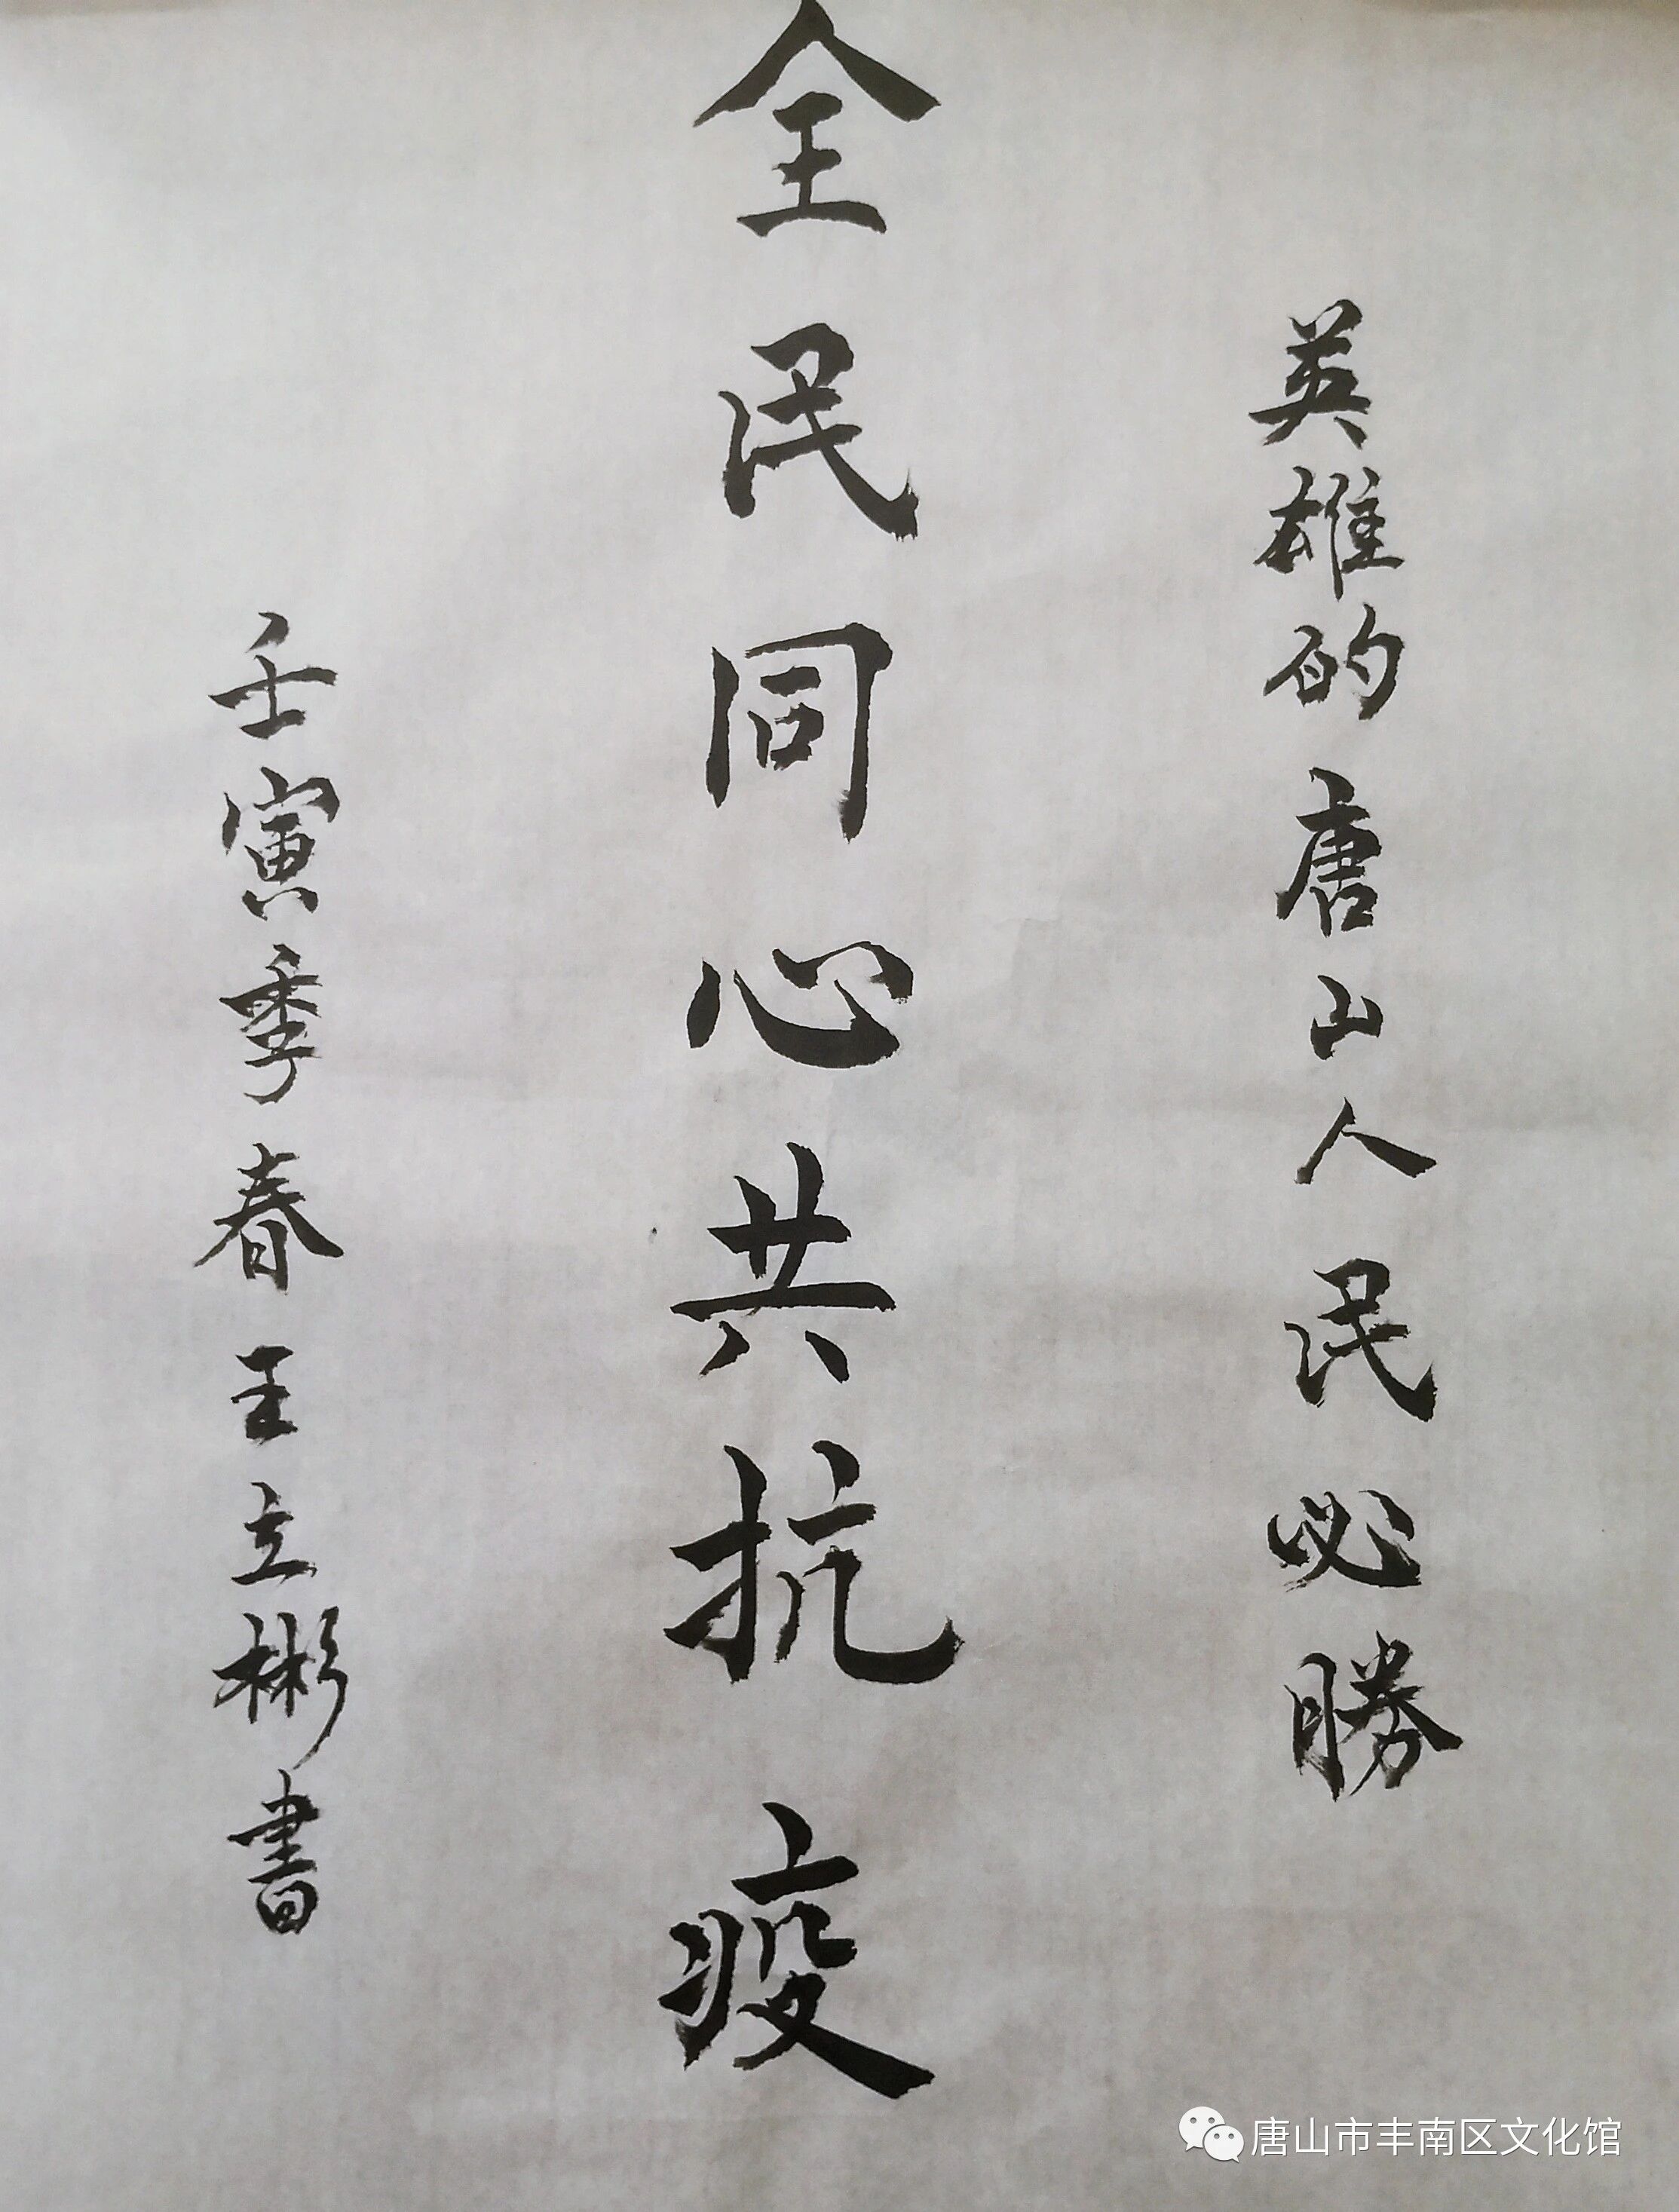 英雄的唐山人民必勝
全民同心共抗疫
壬寅季春王立彬書
唐山市丰南区文化馆